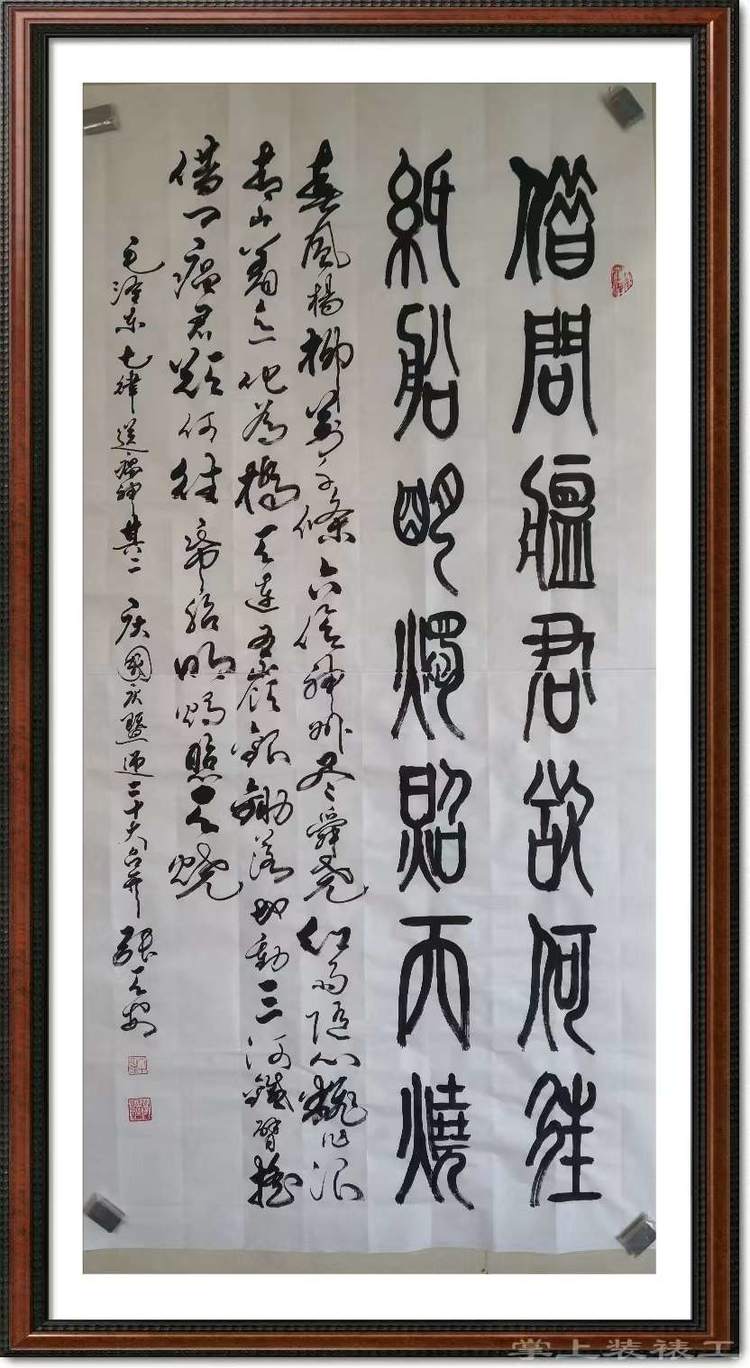 借問瘟君欲何往
紙船明燭照天燒
春風楊柳萬千條六億神州盡舜堯红雨隨心翻作浪
青山着意化為橋天連五嶺銀鋤落地動三河鐵臂搖
借问瘟君欲何往紙船明燭照天燒
毛澤东七律送瘟神其二 庆國庆暨迎二十大召开 張天安
掌上装裱工